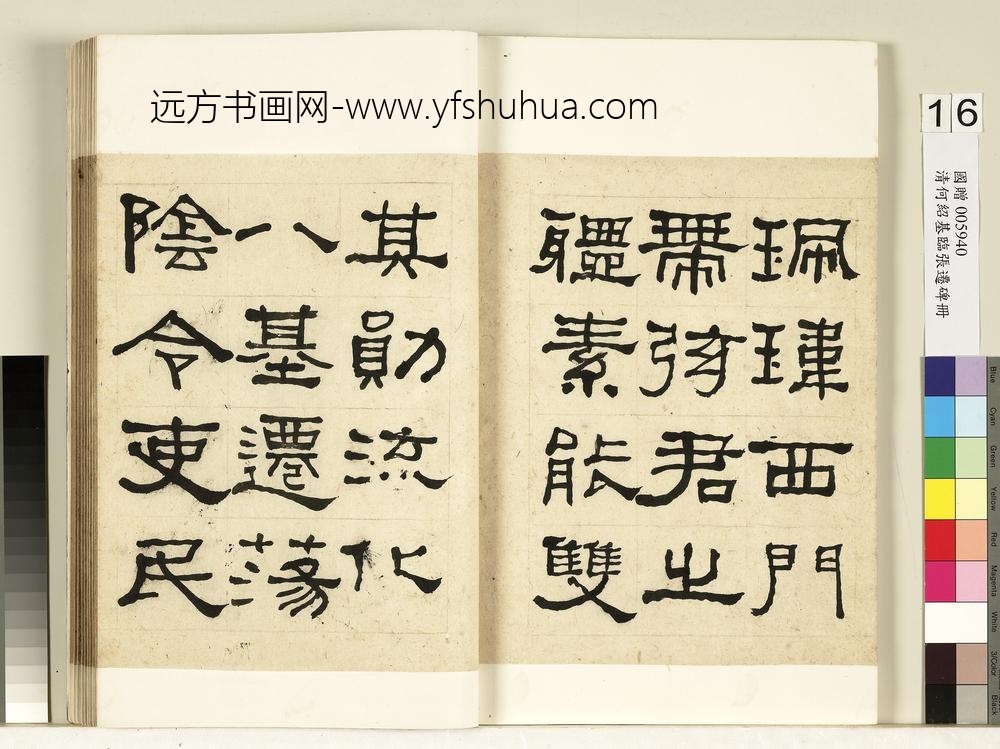 远方书画网-www.yfshuhua.com
珮瑋西門
帶弦君之
疆素能雙
其勛流化
八基遷蕩
陰令吏民
16
國贈 005940
清何紹基臨張遷碑冊
Blue
Cyan
Green
Yellow
Red
Magenta
White
3/Color
Black